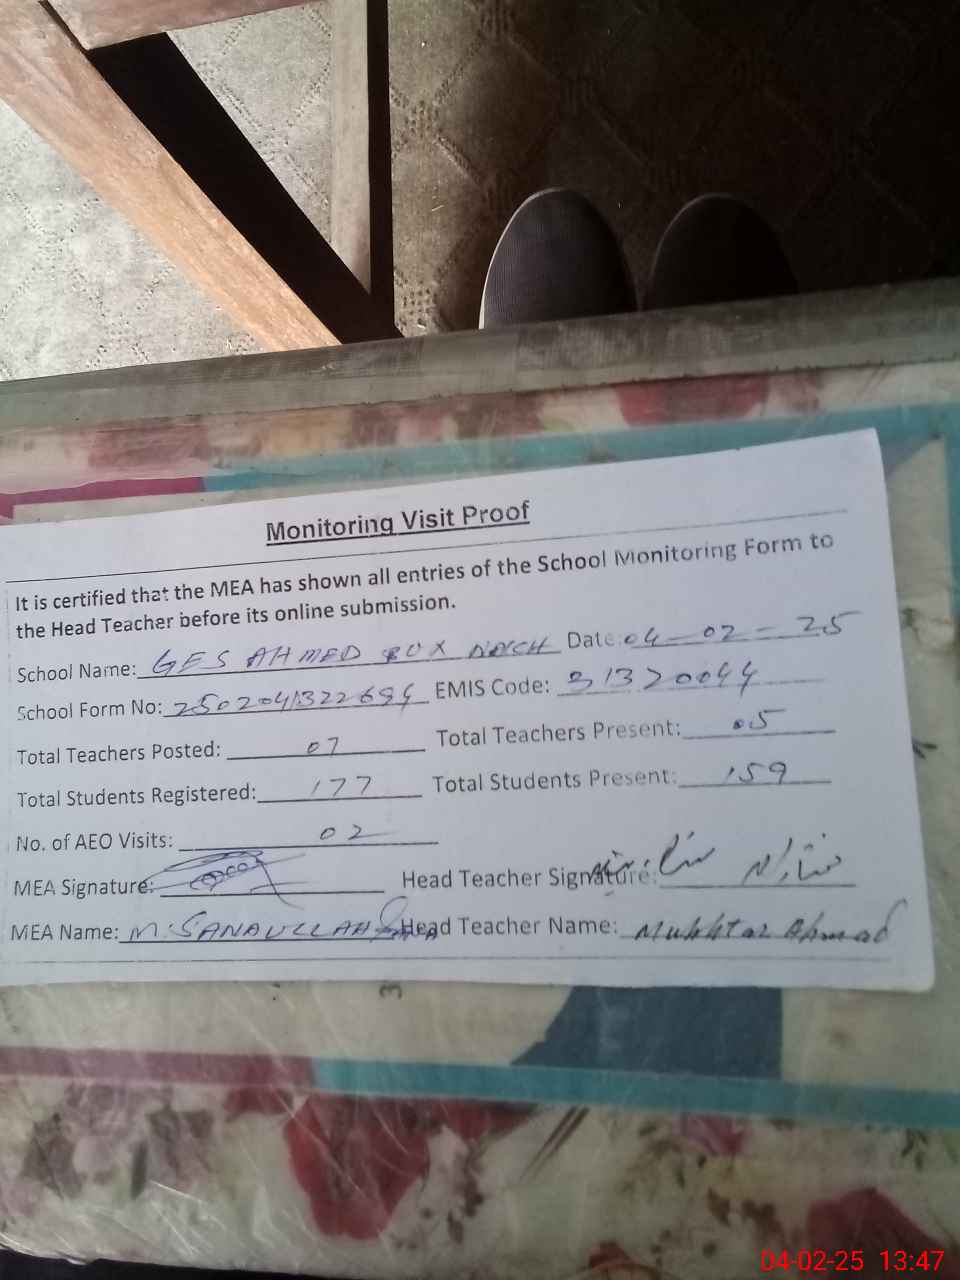 Monitoring Visit Proof
It is certified that the MEA has shown all entries of the School Monitoring Form to
the Head Teacher before its online submission.
School Name: GES AHMED BUX NAICH Date: 04-02-25
School Form No: 250204132269 EMIS Code: 31320044
Total Teachers Posted: 07 Total Teachers Present: 05
Total Students Registered: 177 Total Students Present: 159
No. of AEO Visits: 02
MEA Signature: Head Teacher Signature:
MEA Name: M. SANAULLAH Head Teacher Name: Mukhtar Ahmad
3
04-02-25 13:47